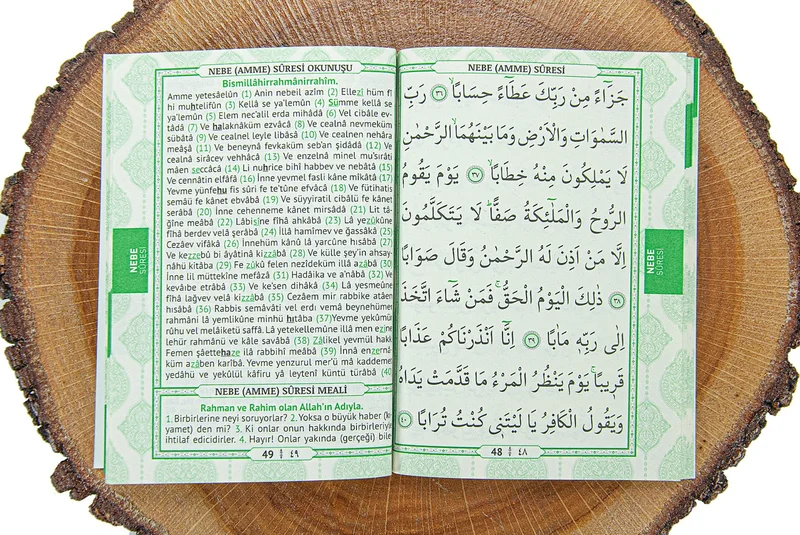 NEBE (AMME) SÛRESİ
جَزَٓاءً مِنْ رَبِّكَ عَطَٓاءً حِسَابًاۙ ﴿٣٦﴾ رَبِّ
السَّمٰوَاتِ وَالْاَرْضِ وَمَا بَيْنَهُمَا الرَّحْمٰنِ
لَا يَمْلِكُونَ مِنْهُ خِطَابًاۚ ﴿٣٧﴾ يَوْمَ يَقُومُ
الرُّوحُ وَالْمَلٰٓئِكَةُ صَفًّاۜ لَا يَتَكَلَّمُونَ
اِلَّا مَنْ اَذِنَ لَهُ الرَّحْمٰنُ وَقَالَ صَوَابًا
﴿٣٨﴾ ذٰلِكَ الْيَوْمُ الْحَقُّۚ فَمَنْ شَٓاءَ اتَّخَذَ
اِلٰى رَبِّهٖ مَاٰبًا ﴿٣٩﴾ اِنَّٓا اَنْذَرْنَاكُمْ عَذَابًا
قَرٖيبًاۚ يَوْمَ يَنْظُرُ الْمَرْءُ مَا قَدَّمَتْ يَدَاهُ
وَيَقُولُ الْكَافِرُ يَا لَيْتَنٖى كُنْتُ تُرَابًا ﴿٤٠﴾
48 ٤٨
NEBE
SÛRESİ
NEBE (AMME) SÛRESİ OKUNUŞU
Bismillâhirrahmânirrahîm.
Amme yetesâelûn (1) Anin nebeil azîm (2) Ellezî hüm fî
hi muhtelifûn (3) Kellâ se ya'lemûn (4) Sümme kellâ se
ya'lemûn (5) Elem nec'alil erda mihâdâ (6) Vel cibâle ev-
tâdâ (7) Ve halaknâküm ezvâcâ (8) Ve cealnâ nevmeküm
sübâtâ (9) Ve cealnel leyle libâsâ (10) Ve cealnen nehâra
meâşâ (11) Ve beneynâ fevkaküm seb'an şidâdâ (12) Ve
cealnâ sirâcev vehhâcâ (13) Ve enzelnâ minel mu'sırâti
mâen seccâcâ (14) Li nuhrice bihî habbev ve nebâtâ (15)
Ve cennâtin elfâfâ (16) İnne yevmel fasli kâne mîkâtâ (17)
Yevme yünfehu fis sûri fe te'tûne efvâcâ (18) Ve fütihatis
semâü fe kânet ebvâbâ (19) Ve süyyiratil cibâlü fe kânet
serâbâ (20) İnne cehenneme kânet mirsâdâ (21) Lit tâ-
ğîne meâbâ (22) Lâbisîne fîhâ ahkâbâ (23) Lâ yezûkûne
fîhâ berdev velâ şerâbâ (24) İllâ hamîmev ve ğassâkâ (25)
Cezâev vifâkâ (26) İnnehüm kânû lâ yarcûne hısâbâ (27)
Ve kezzebû bi âyâtinâ kizzâbâ (28) Ve külle şey'in ahsay-
nâhü kitâba (29) Fe zûkû felen nezîdeküm illâ azâbâ (30)
İnne lil müttekîne mefâzâ (31) Hadâika ve a'nâbâ (32) Ve
kevâıbe etrâbâ (33) Ve ke'sen dihâkâ (34) Lâ yesmeûne
fîhâ lağvev velâ kizzâbâ (35) Cezâem mir rabbike atâen
hısâbâ (36) Rabbis semâvâti vel erdı vemâ beynehümer
rahmâni lâ yemlikûne minhü hıtâba (37)Yevme yekûmür
rûhu vel melâiketü saffâ. Lâ yetekellemûne illâ men ezine
lehür rahmânü ve kâle savâbâ (38) Zâlikel yevmül hakku
Femen şâettehaze ilâ rabbihî meâbâ (39) İnnâ enzernâ-
küm azâben karîbâ. Yevme yenzurul mer'ü mâ kaddemet
yedâhü ve yekûlül kâfiru yâ leytenî küntü türâbâ (40)
NEBE (AMME) SÛRESİ MEALİ
Rahman ve Rahim olan Allah'ın Adıyla.
1. Birbirlerine neyi soruyorlar? 2. Yoksa o büyük haber (kı-
yamet) den mi? 3. Ki onlar onun hakkında birbirleriyle
ihtilaf edicidirler. 4. Hayır! Onlar yakında (gerçeği) bile-
49 ٤٩
NEBE
SÛRESİ